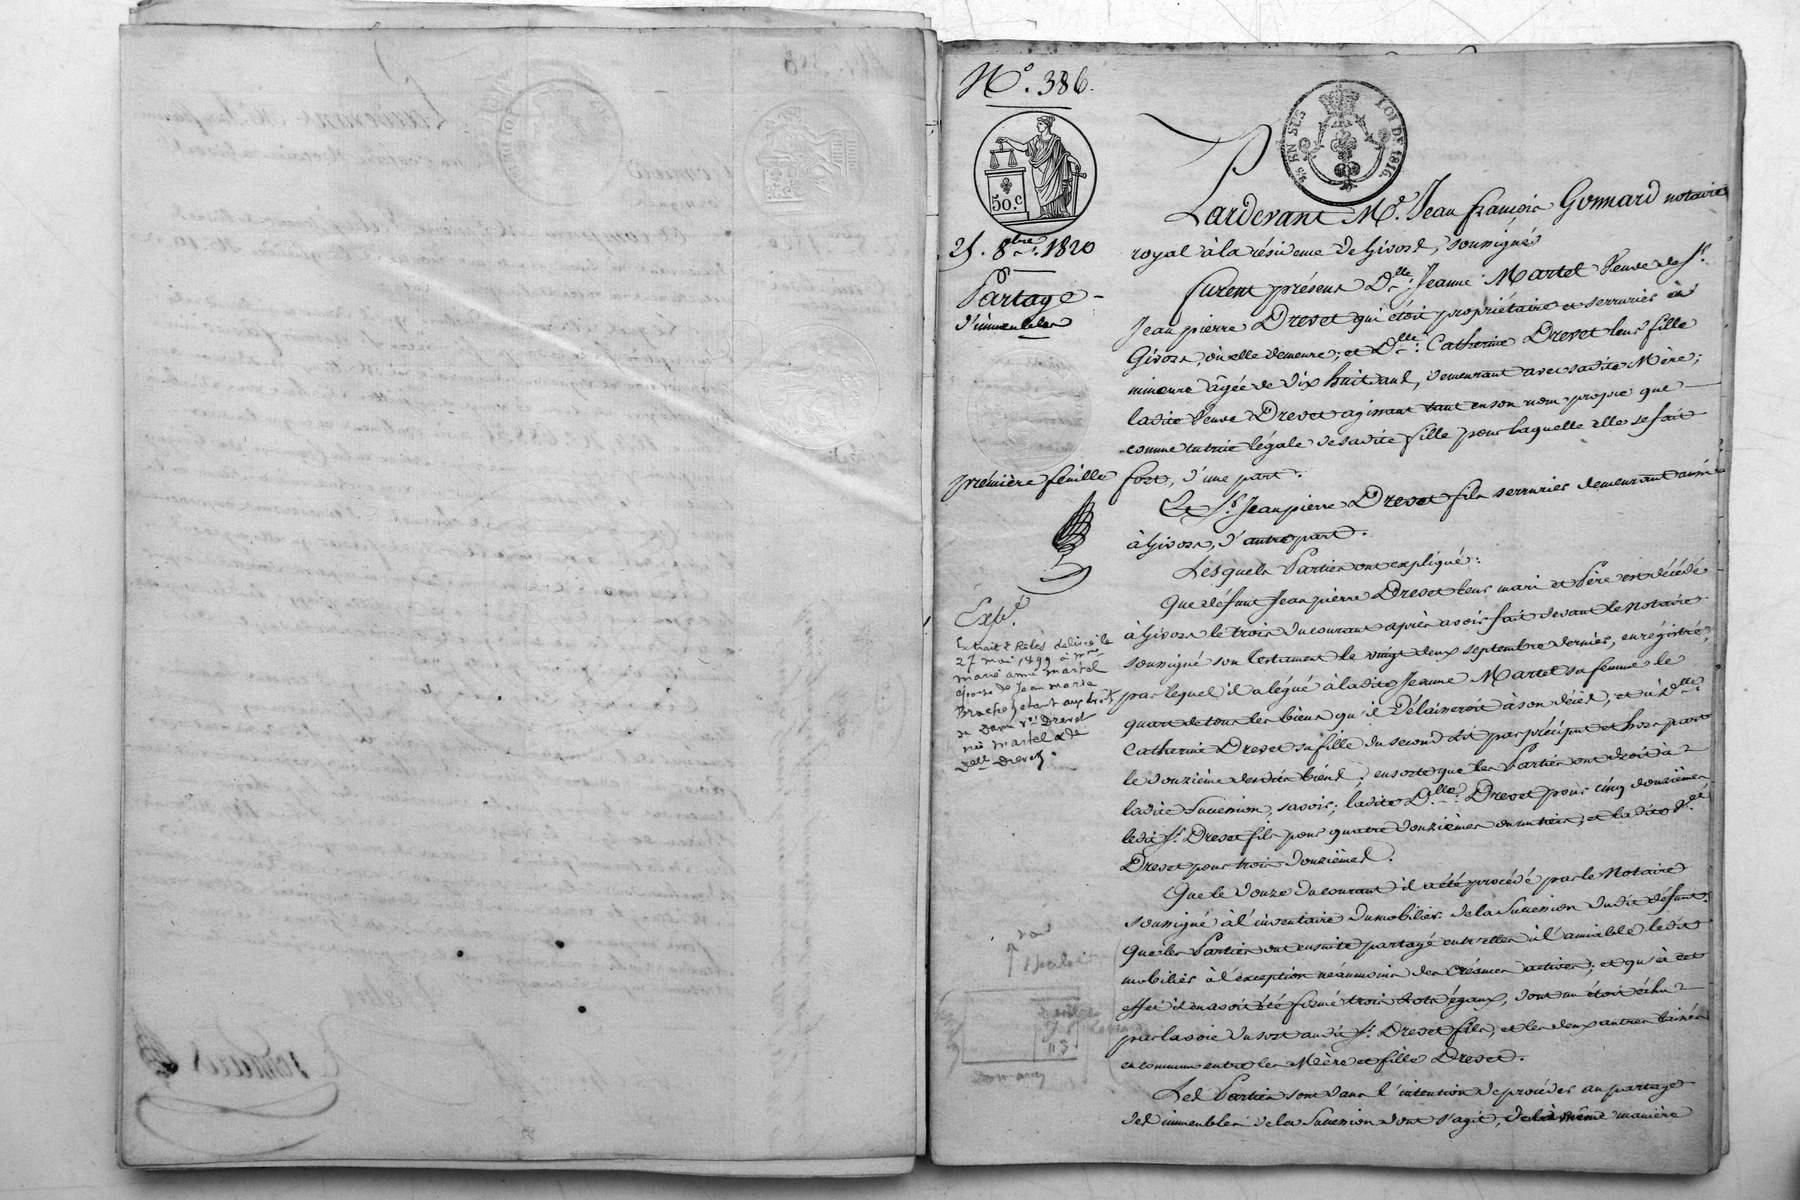 N.° 386.
LOI DE 1816.
50.C
25. 8bre. 1820
Partage
d'immeubles
Pardevant Me. Jean françois Gonnard notaire
royal à la résidence de Givors, soussigné
furent présens Dlle. Jeanne Martel Veuve de Sr.
Jean pierre Drevet qui étoit propriétaire et serrurier à
Givors, où elle demeure; et Dlle. Catherine Drevet leur fille
mineure âgée de dix huit ans, demeurant avec sadite Mère;
ladite Veuve Drevet agissant tant en son nom propre que
comme tutrice légale de sadite fille pour laquelle elle se fait
première feuille
fort, d'une part.
Et Sr. Jean pierre Drevet fils serrurier demeurant aussi
à Givors, d'autre part.
Lesquels Parties ont expliqué:
Que défunt Jean pierre Drevet leur mari et Père est décédé
à Givors le trois du courant après avoir fait devant le Notaire
soussigné son testament le vingt deux septembre dernier, enregistré,
par lequel il a légué à ladite Jeanne Martel sa femme le
quart de tous les biens qu'il délaisseroit à son décès, et à Dlle.
Catherine Drevet sa fille du second lit par préciput et hors part
le douzième desdits biens; ensorte que les Parties ont droit à
ladite Succession, savoir; ladite Dlle. Drevet pour cinq douzièmes
ledit Sr. Drevet fils pour quatre douzièmes ou un tiers, et ladite Ve.
Drevet pour trois douzièmes.
Que le douze du courant il a été procédé par le Notaire
soussigné à l'inventaire du mobilier de la Succession dudit défunt.
Que les Parties ont ensuite partagé entr'elles à l'amiable ledit
mobilier à l'exception néanmoins des créances actives; et qu'à cet
effet il en a soit été formé trois lots égaux, dont un étoit échu
par la voie du sort audit Sr. Drevet fils, et les deux autres laissés
en commun entre les Mère et fille Drevet.
Les Parties sont dans l'intention de procéder au partage
des immeubles de la Succession dont s'agit, de la même manière
Expé.
Extrait 2 Rôles délivré le
27 mai 1899 à Mme
marie anne martel
épouse de Jean marie
Brachet étant aux droits
de Dame Ve. Drevet
née martel & de
Delle Drevet.